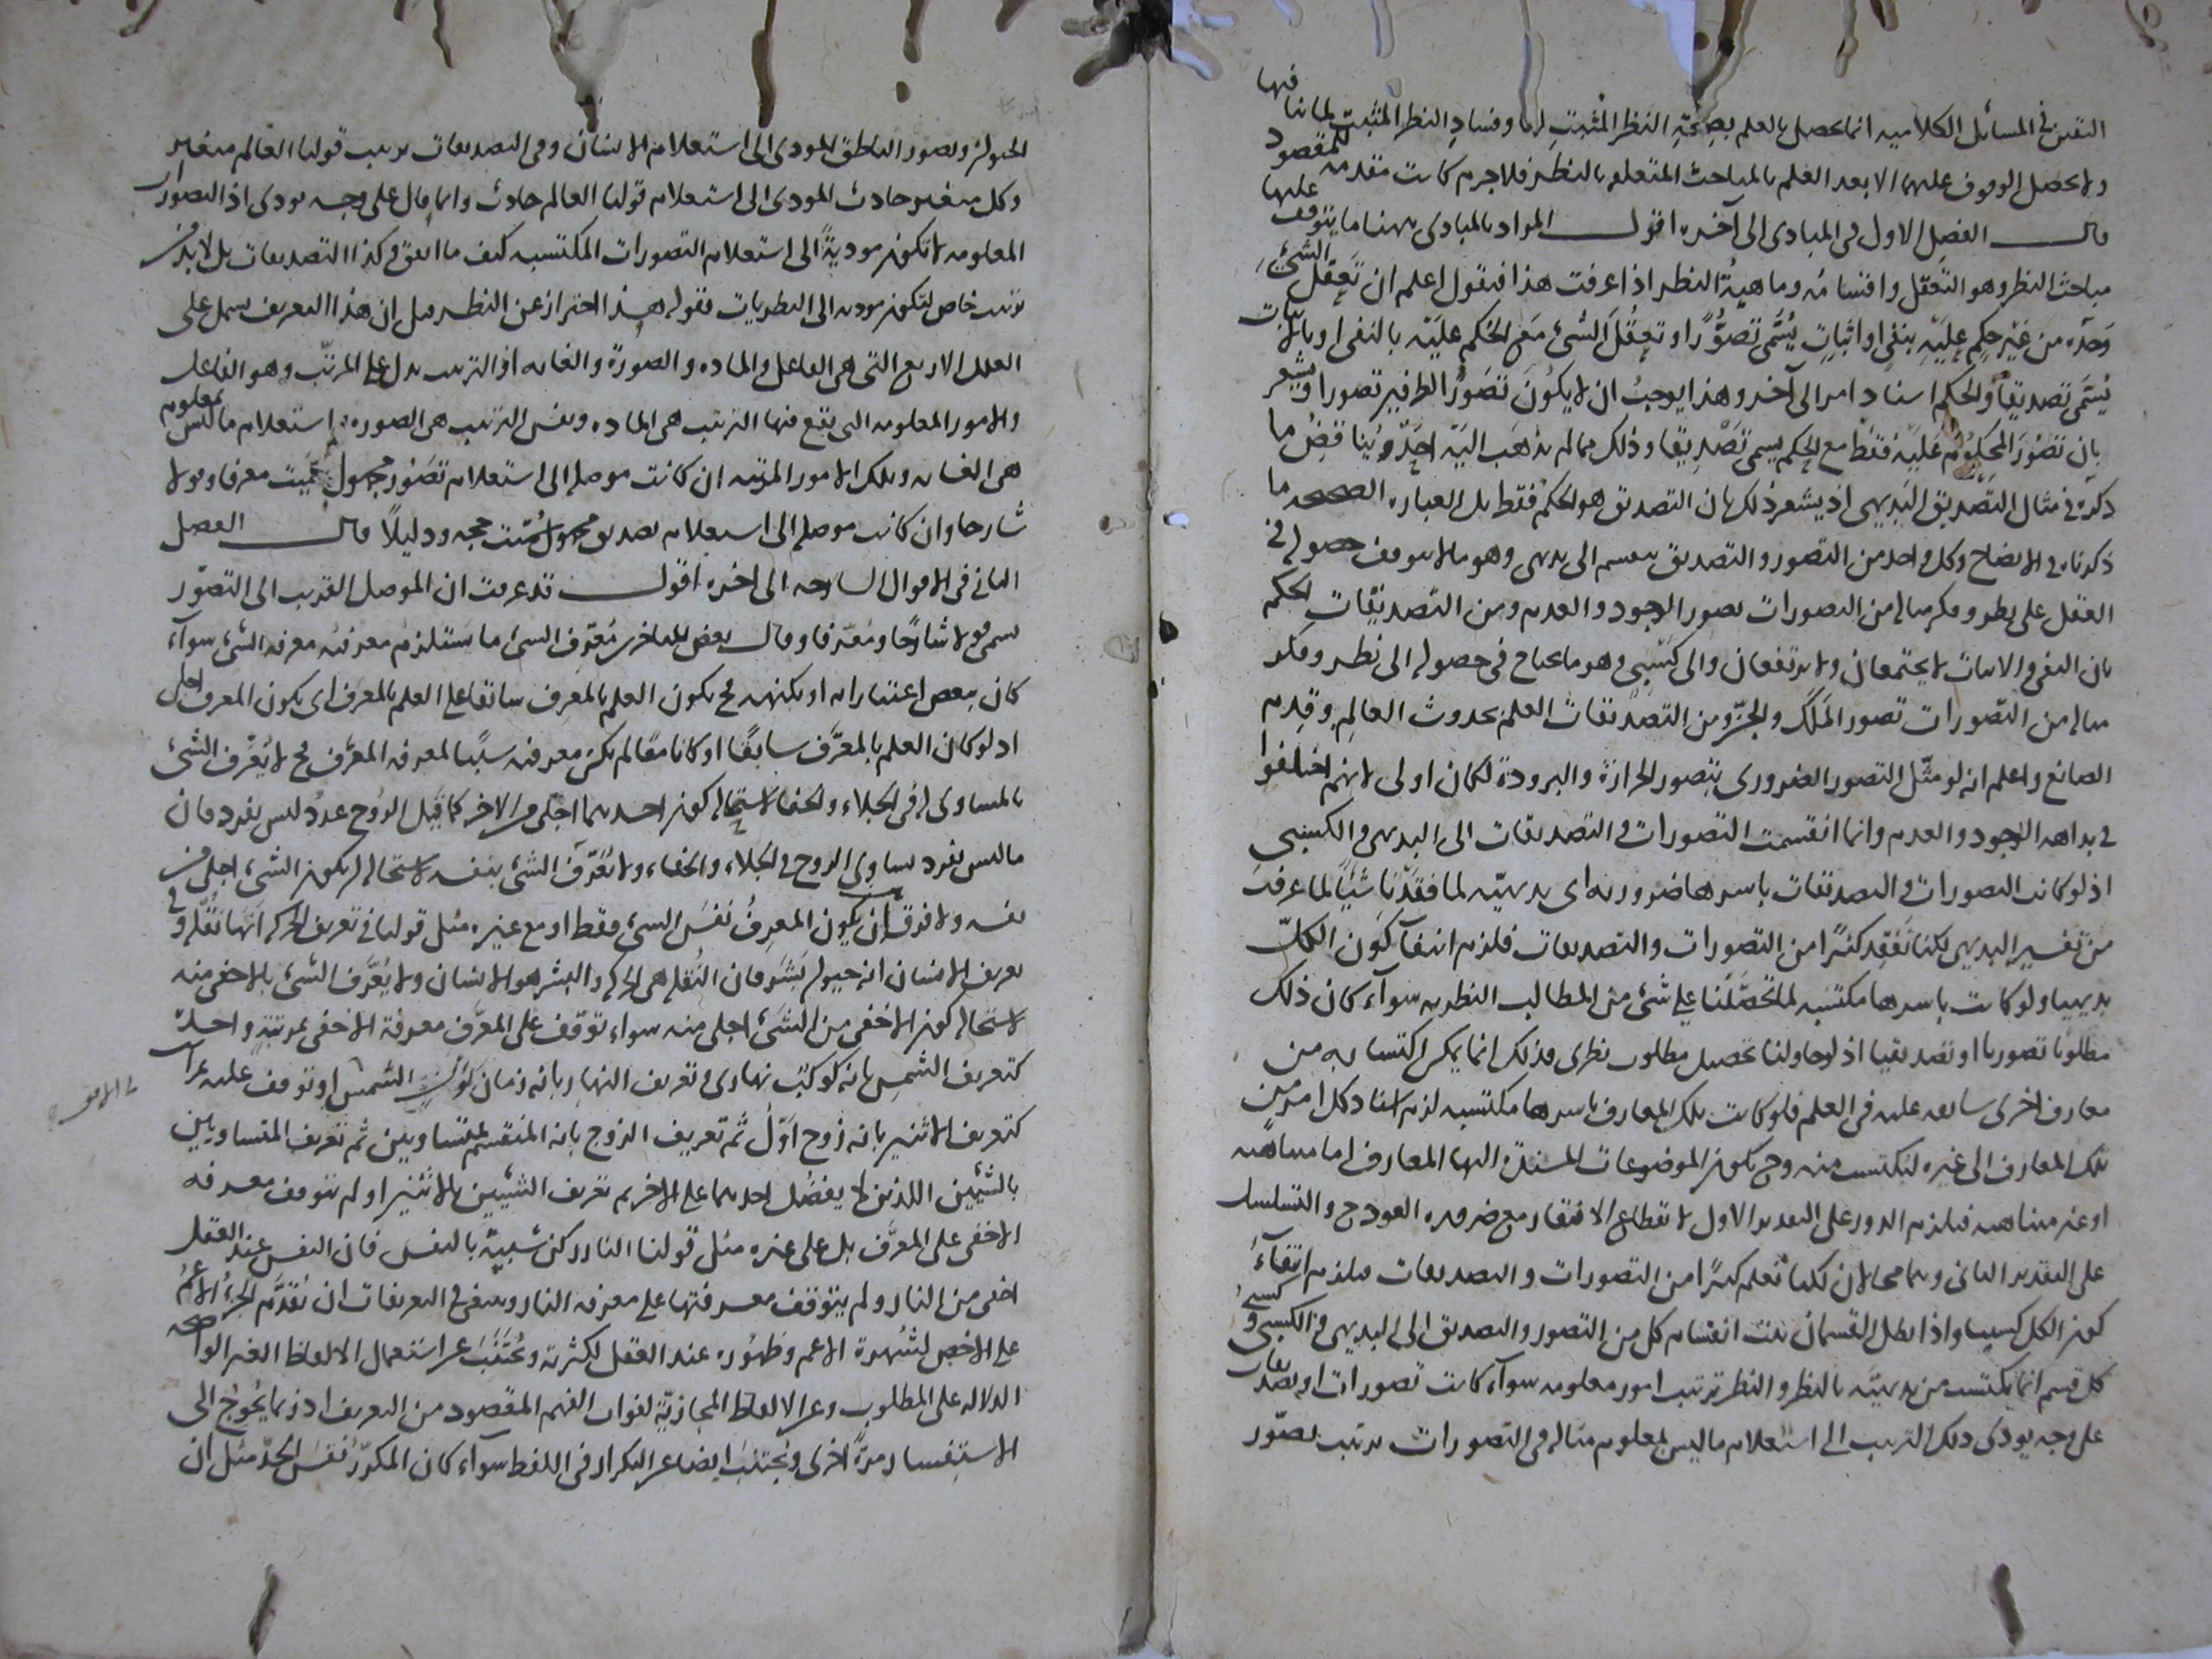 اليقين في المسائل الكلامية انما يحصل بالعلم بصحة النظر المثبت لها وفساد النظر المثبت لما ينافيها
ولا يحصل الوقوف عليهما الا بعد العلم بالمباحث المتعلقة بالنظر فلا جرم كانت مقدمة للمقصود
قال الفصل الاول في المبادى الى آخره اقول المراد بالمبادى ههنا ما يتوقف عليها
مباحث النظر وهو التعقل واقسامه وماهية النظر اذا عرفت هذا فنقول اعلم ان تعقل الشئ
وحده من غير حكم عليه بنفى او اثبات يُسمّى تصوّرا او تعقل الشئ مع الحكم عليه بالنفى او بالاثبات
يُسمّى تصديقا والحكم اسناد امر الى آخر وهذا يوجب ان لا يكون تصوّر الطرفين تصورا ويشعر
بان تصور المحكوم عليه فقط مع الحكم يسمى تصديقا وذلك مما لم يذهب اليه احد ويناقض ما
ذكره في مثال التصديق البديهى اذ يشعر ذلك بان التصديق هو الحكم فقط بل العبارة الصحيحة ما
ذكرناه في الايضاح وكل واحد من التصور والتصديق ينقسم الى بديهى وهو ما لا يتوقف حصوله في
العقل على نظر وفكر مثاله من التصورات تصور الوجود والعدم ومن التصديقات الحكم
بان النفى والاثبات لا يجتمعان ولا يرتفعان والى كسبى وهو ما يحتاج في حصوله الى نظر وفكر
مثاله من التصورات تصور الملك والجن ومن التصديقات العلم بحدوث العالم وقدم
الصانع واعلم انه لو مثّل التصور الضرورى بتصور الحرارة والبرودة لكان اولى لانهم اختلفوا
في بداهة الوجود والعدم وانما انقسمت التصورات والتصديقات الى البديهى والكسبى
اذ لو كانت التصورات والتصديقات باسرها ضرورية اى بديهية لما فقدنا شيئا لما عرفت
من تفسير البديهى لكنا نفقد كثيرا من التصورات والتصديقات فلزم انتفاء كون الكل
بديهيا ولو كانت باسرها مكتسبة لما تحصّلنا على شئ من المطالب النظرية سواء كان ذلك
مطلوبا تصوريا او تصديقيا اذ لو حاولنا تحصيل مطلوب نظرى فذلك انما يمكن اكتسابه من
معارف اخرى سابقة عليه في العلم فلو كانت تلك المعارف باسرها مكتسبة لزم اسناد كل امر من
تلك المعارف الى غيره ليكتسب منه وح يكون الموضوعات المستندة اليها المعارف اما متناهية
او غير متناهية فيلزم الدور على التقدير الاول لانقطاع الافتقار مع ضرورة العود ح والتسلسل
على التقدير الثانى وهما محالان لكنا نعلم كثيرا من التصورات والتصديقات فيلزم انتفاء
كون الكل كسبيا واذا بطل القسمان ثبت انقسام كل من التصور والتصديق الى البديهى والكسبى
كل قسم انما يكتسب من بديهيّه بالنظر والنظر ترتيب امور معلومة سواء كانت تصورات او تصديقات
على وجه يودى ذلك الترتيب الى استعلام ما ليس بمعلوم مثاله في التصورات ترتيب تصوّر
الحيوان وتصور الناطق المودى الى استعلام الانسان وفي التصديقات ترتيب قولنا العالم متغير
وكل متغير حادث المودى الى استعلام قولنا العالم حادث وانما قال على وجه يودى اذ التصورات
المعلومة لا تكون مودية الى استعلام التصورات المكتسبة كيف ما اتفق وكذا التصديقات بل لا بد من
ترتيب خاص لتكون مودية الى النظريات فقوله هذا احتراز عن النظر قيل ان هذا التعريف يشمل على
العلل الاربع التى هي الفاعل والمادة والصورة والغاية اذ الترتيب يدل على المرتّب وهو الفاعل
والامور المعلومة التى يقع فيها الترتيب هى المادة ونفس الترتيب هى الصورة واستعلام ما ليس بمعلوم
هى الغاية وتلك الامور المرتبة ان كانت موصلة الى استعلام تصور مجهول سميت معرفا وقولا
شارحا وان كانت موصلة الى استعلام تصديق مجهول سميت حجة ودليلا قال الفصل
الثانى في الاقوال الشارحة الى اخره اقول قد عرفت ان الموصل القريب الى التصوّر
يسمى قولا شارحا ومعرّفا وقال بعض المتاخرين مُعرّف الشئ ما يستلزم معرفته معرفة الشئ سواء
كان ببعض اعتباراته او بكنهه فح يكون العلم بالمعرِف سابقا على العلم بالمعرف اى يكون المعرف اجلى
اذ لو كان العلم بالمعرَّف سابقا او كانا معا لم يكن معرفته سببا لمعرفة المعرَّف فح لا يُعرَّف الشئ
بالمساوى له في الجلاء والخفا لاستحالة كون احدهما اجلى من الاخر كما قيل الزوج عدد ليس بفرد فان
ما ليس بفرد يساوى الزوج في الجلاء والخفاء ولا يُعرّف الشئ بنفسه لاستحالة ان يكون الشئ اجلى من
نفسه ولا فرق بين ان يكون المعرِفُ نفسَ الشئ فقط او مع غيره مثل قولنا في تعريف الحركة انها نُقلة وفي
تعريف الانسان انه حيوان بَشَر فان النُقلة هى الحركة والبشر هو الانسان ولا يُعرَّف الشئ بالاخفى منه
لاستحالة كون الاخفى من الشئ اجلى منه سواء توقف على المعرَّف معرفة الاخفى بمرتبة واحدة
كتعريف الشمس بانه كوكب نهارى وتعريف النهار بانه زمان كون الشمس او توقف عليه بمراتب
كتعريف الاثنين بانه زوج اوّل ثم تعريف الزوج بانه المنقسم بمتساويين ثم تعريف المتساويين
بالشيئين اللذين لا يفضُل احدهما على الاخر ثم تعريف الشيئين بالاثنين او لم تتوقف معرفة
الاخفى على المعرَّف بل على غيره مثل قولنا النار ركن شبيه بالنفس فان النفس عند العقل
اخفى من النار ولم يتوقف معرفتها على معرفة النار وينبغى في التعريفات ان يُقدَّم الجزء الاعمّ
على الاخص لشهرة الاعم وظهوره عند العقل لكثرته ويُجتَنَبَ عن استعمال الالفاظ الغير الواضحة
الدلالة على المطلوب وعن الالفاظ المجازيّة لفوات الفهم المقصود من التعريف اذ ربما يُحوج الى
الاستفسار مرة اخرى ويُجتنب ايضا عن التكرار في اللفظ سواء كان المكرّر نفسَ الحدّ مثل ان